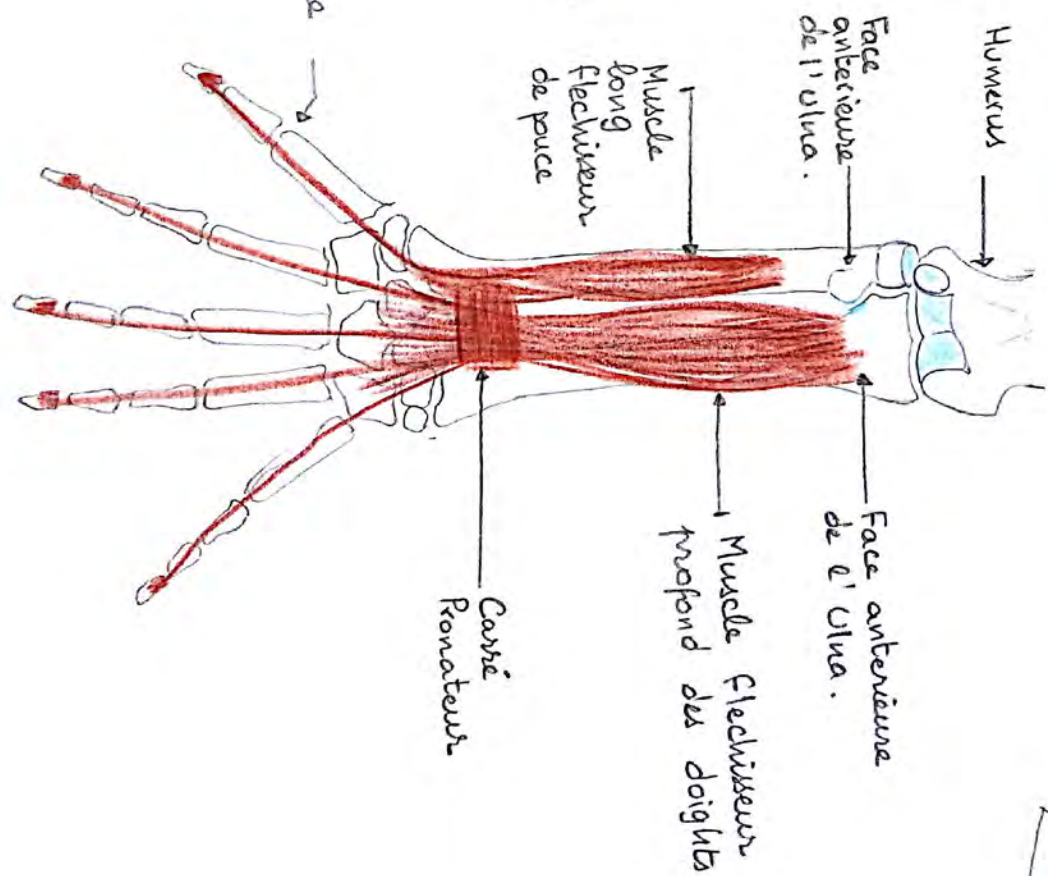 Humerus
Face
anterieure
de l'Ulna.
Muscle
long
flechisseur
de pouce
Face anterieure
de l'Ulna.
Muscle flechisseur
profond des doights
Carré
Pronateur